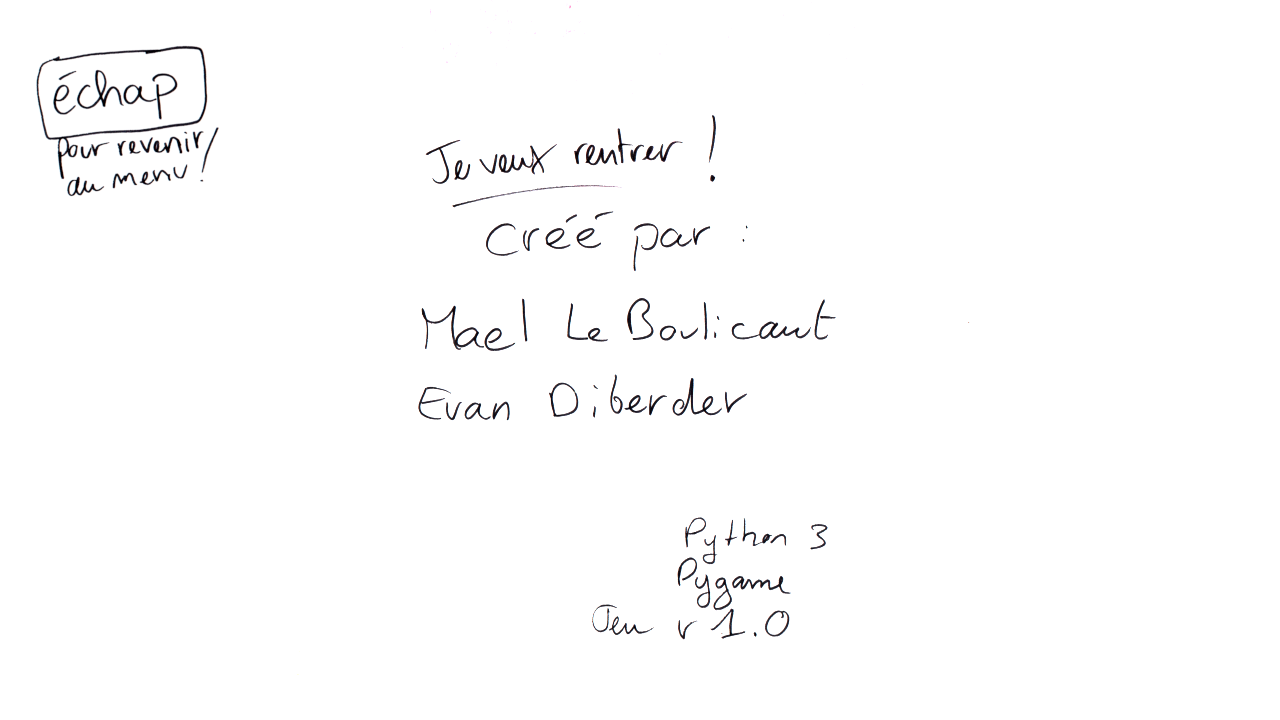 échap
pour revenir
au menu !
Je veux rentrer !
Créé par :
Mael Le Boulicaut
Evan Diberder
Python 3
Pygame
Jeu v 1.0